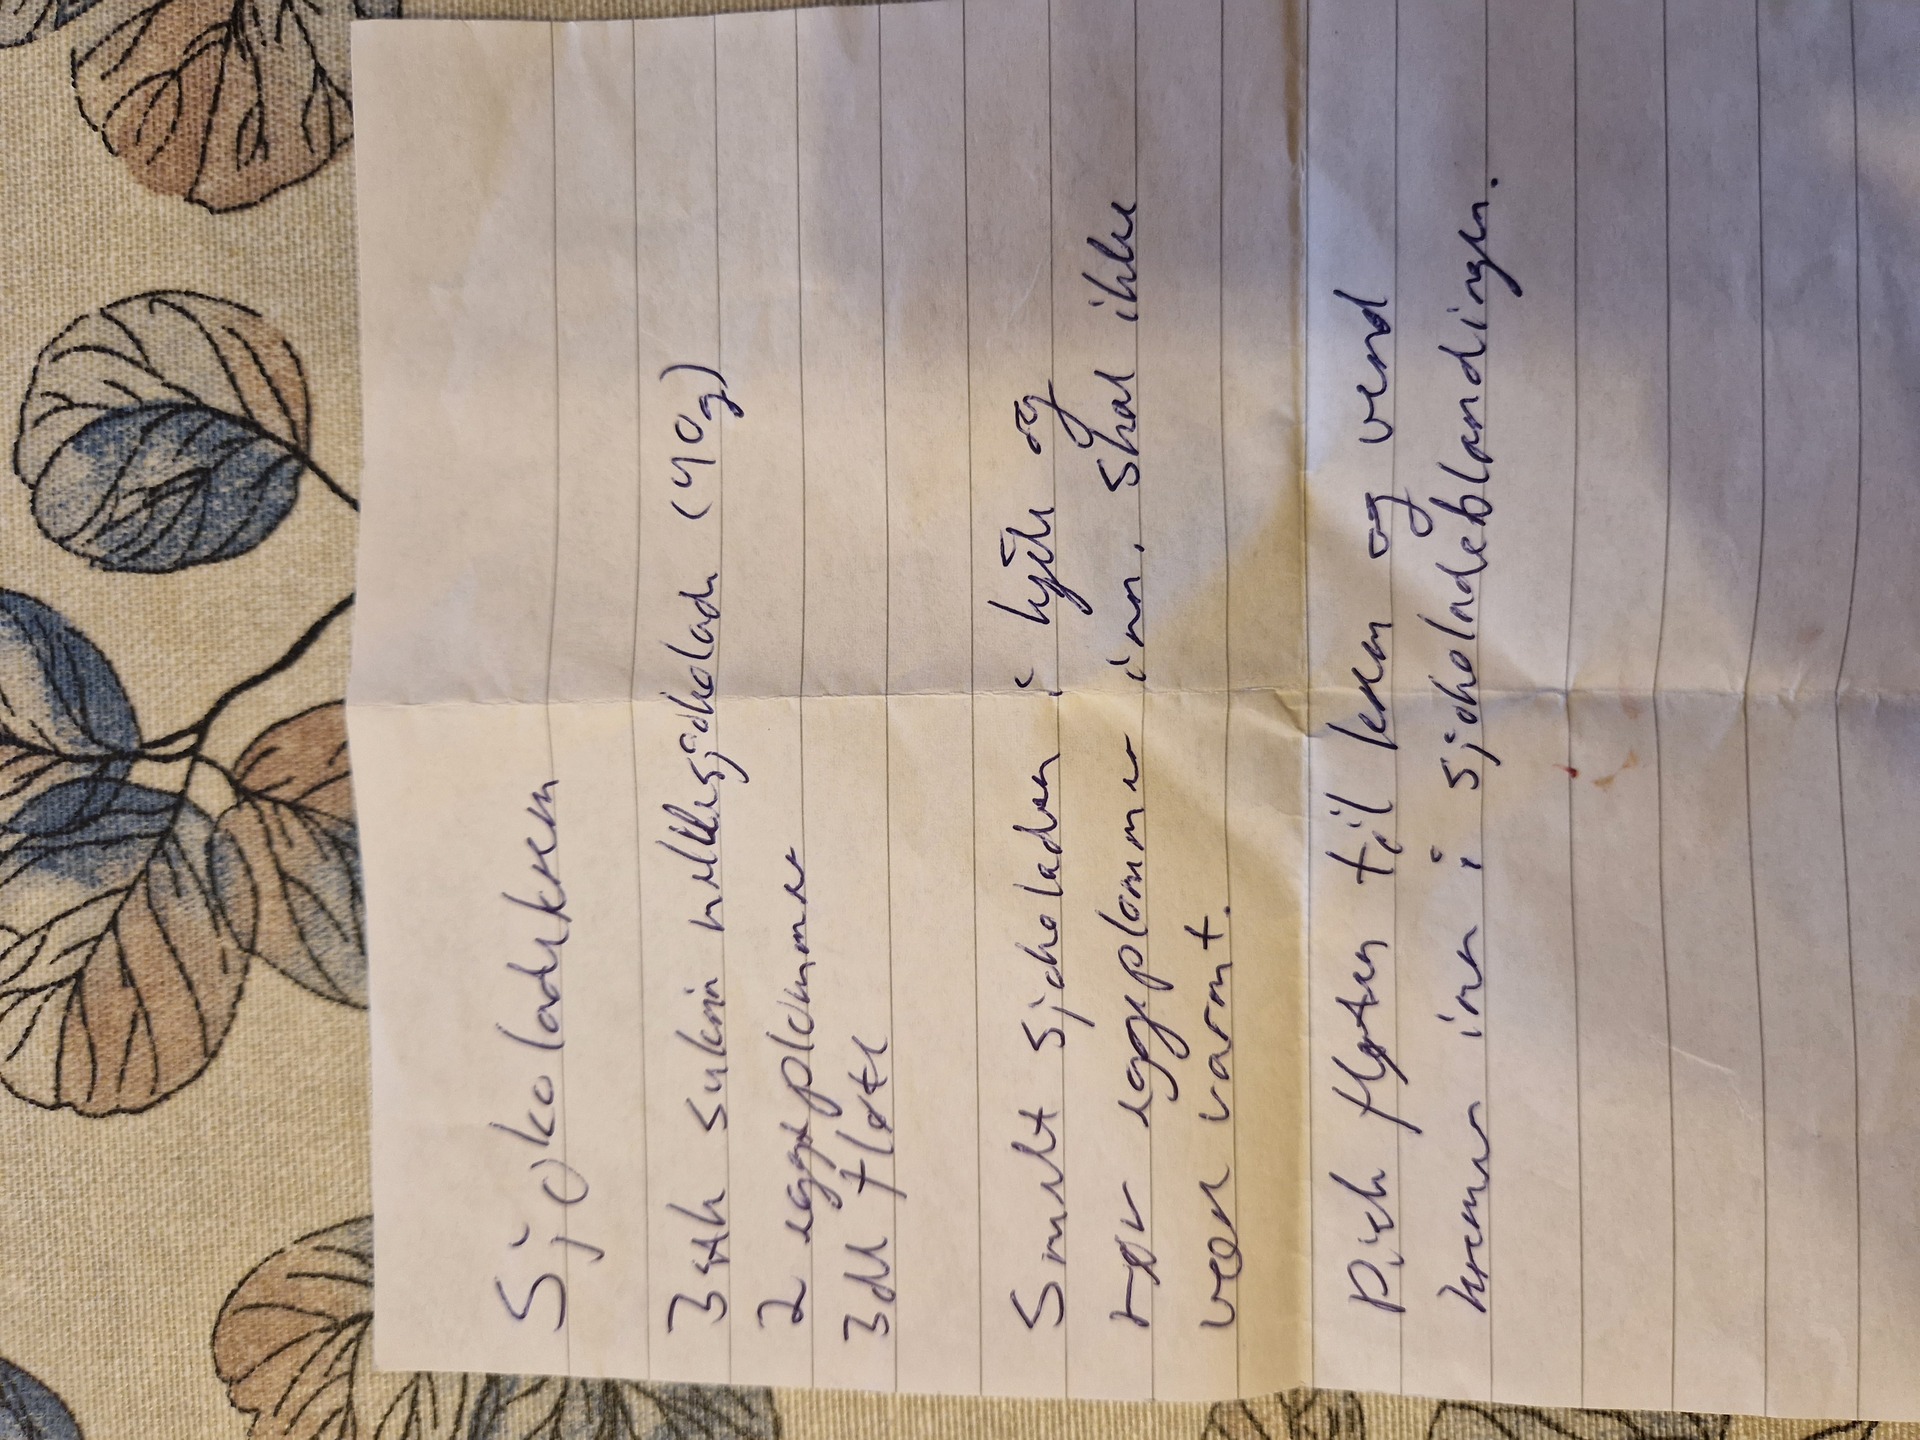 Sjokoladekrem
3 stk sukrin melkesjokolade (40g)
2 eggeplommer
3 dl fløte
Smelt sjokoladen i kjele og
rør eggeplommer inn. Skal ikke
være varmt.
Pisk fløten til krem og vend
kremen inn i sjokoladeblandingen.